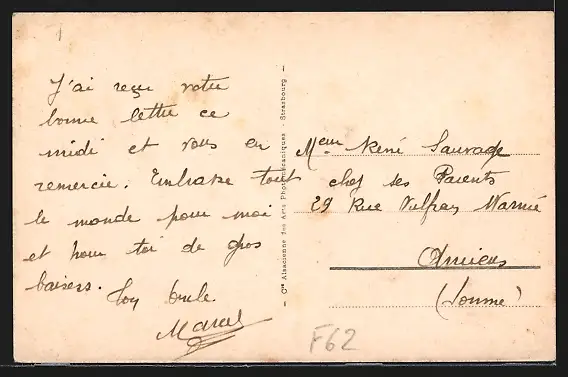 J'ai reçu votre
bonne lettre ce
midi et vous en
remercie. Embrasse tout
le monde pour moi
et pour toi de gros
baisers. Ton oncle
Marcel
Cie Alsacienne des Arts Photomécaniques - Strasbourg
Meur René Sauvage
chez ses Parents
29 Rue Vulfran Warmé
Amiens
(Somme)
F62